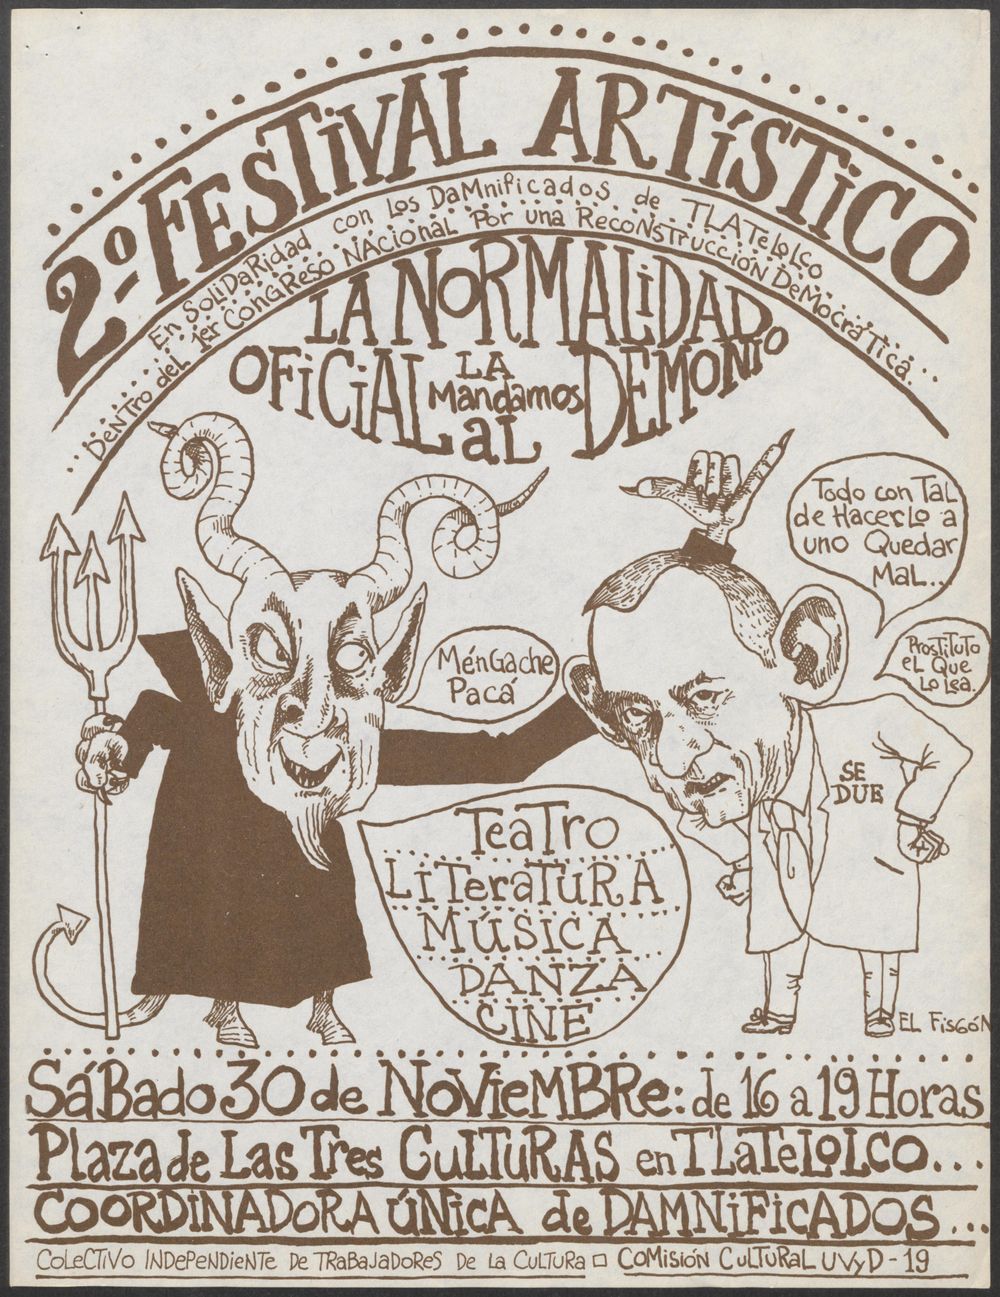 2º FESTIVAL ARTÍSTICO
En SOLIDARIDAD con Los DaMnificadoS de TLATeLoLco
DENTro deL 1er ConGReso NAcionaL Por una RecoNSTrucciÓN DeMocráTica...
LA NORMALIDAD
OFICIAL LA MandamoS aL DEMONIO
Todo con TaL
de HacerLo a
uno Quedar
MaL...
ProsTiTuTo
eL Que
Lo Lea.
MénGache
Pacá
SE
DUE
TeaTro
LiTeraTURA
MÚSICA
DANZA
CINE
EL FisGÓN
SáBado 30 de NoViEMBRe: de 16 a 19 Horas
Plaza de Las Tres CULTURAS en TLaTeLoLco...
COORDINADORA ÚNICA de DAMNiFiCADOS...
ColeCTIVo INDePeNDieNTe De TRaBaJaDORes De La CuLTuRa □ CoMisión CuLTuRaL UVyD - 19